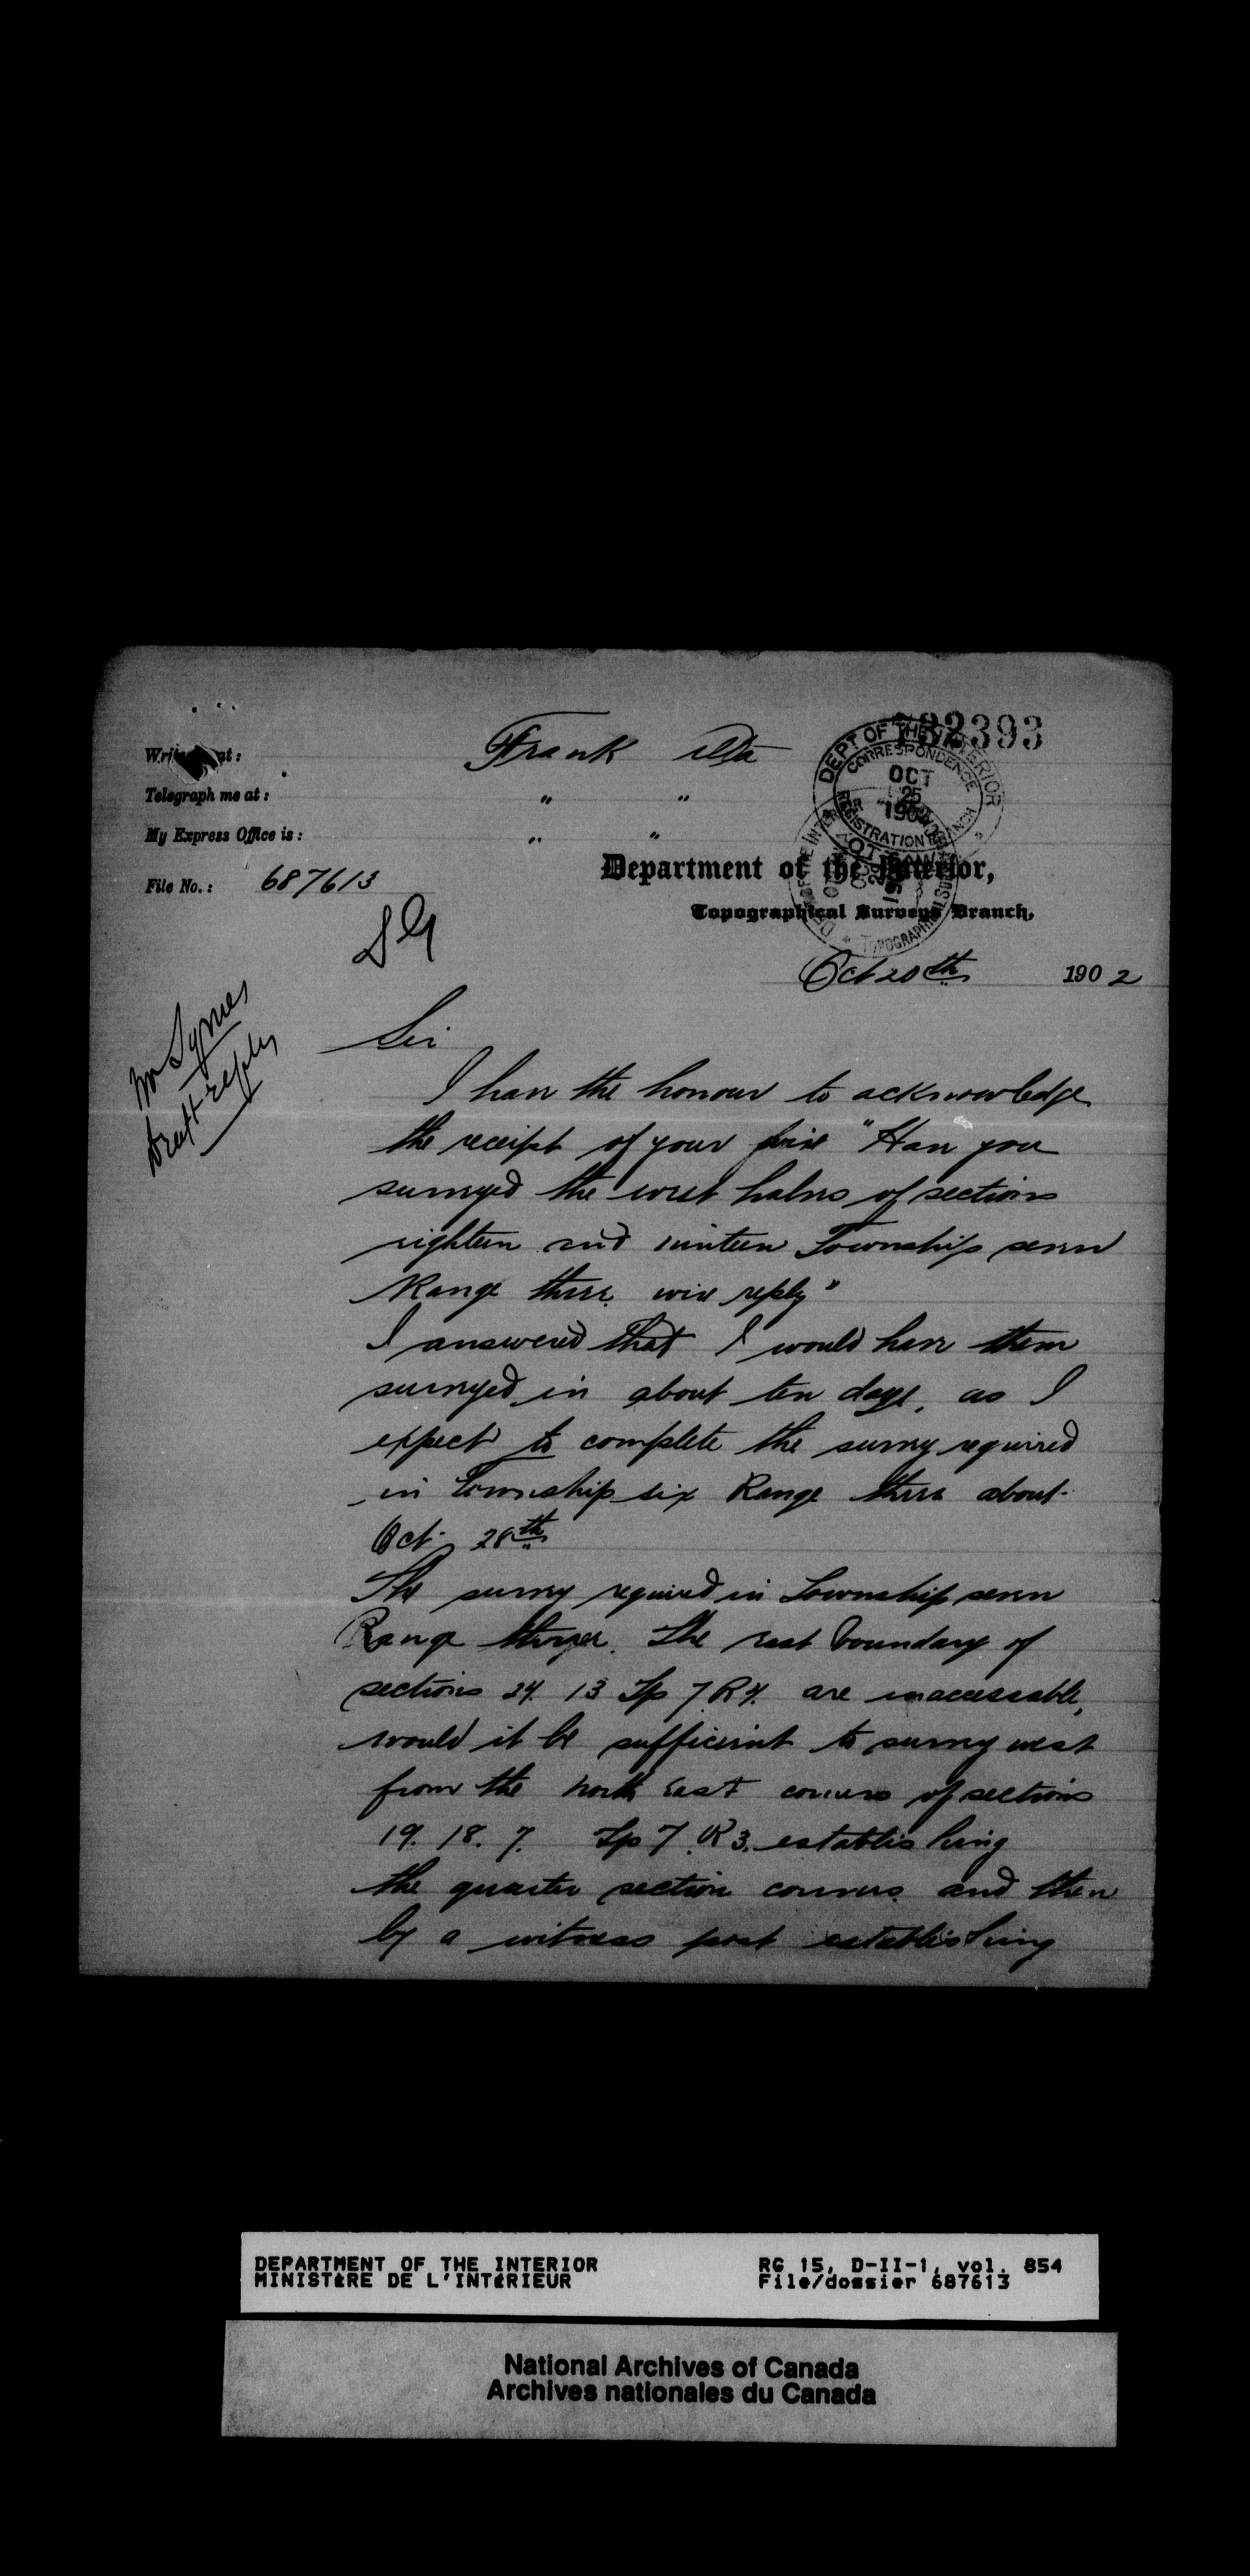 732393
Write me at: Frank Alta
Telegraph me at: " "
My Express Office is: " "
File No.: 687613
DEPT OF THE INTERIOR
CORRESPONDENCE
OCT
25
190
REGISTRATION BRANCH
Department of the Interior,
Topographical Surveys Branch,
Oct 20th 1902
Mr Symes
Draft reply
Sir
I have the honour to acknowledge
the receipt of your wire "Have you
surveyed the west halves of sections
eighteen and nineteen Township seven
Range three wire reply"
I answered that I would have them
surveyed in about ten days, as I
expect to complete the survey required
in Township six Range three about
Oct. 28th
The survey required in Township seven
Range three. The east boundary of
sections 24. 13 Tp 7 R 4. are inaccessable,
would it be sufficient to survey west
from the north east corners of sections
19. 18. 7. Tp 7. R 3. establishing
the quarter section corners and then
by a witness post establishing
DEPARTMENT OF THE INTERIOR RG 15, D-II-1, vol. 854
MINISTÈRE DE L'INTÉRIEUR File/dossier 687613
National Archives of Canada
Archives nationales du Canada